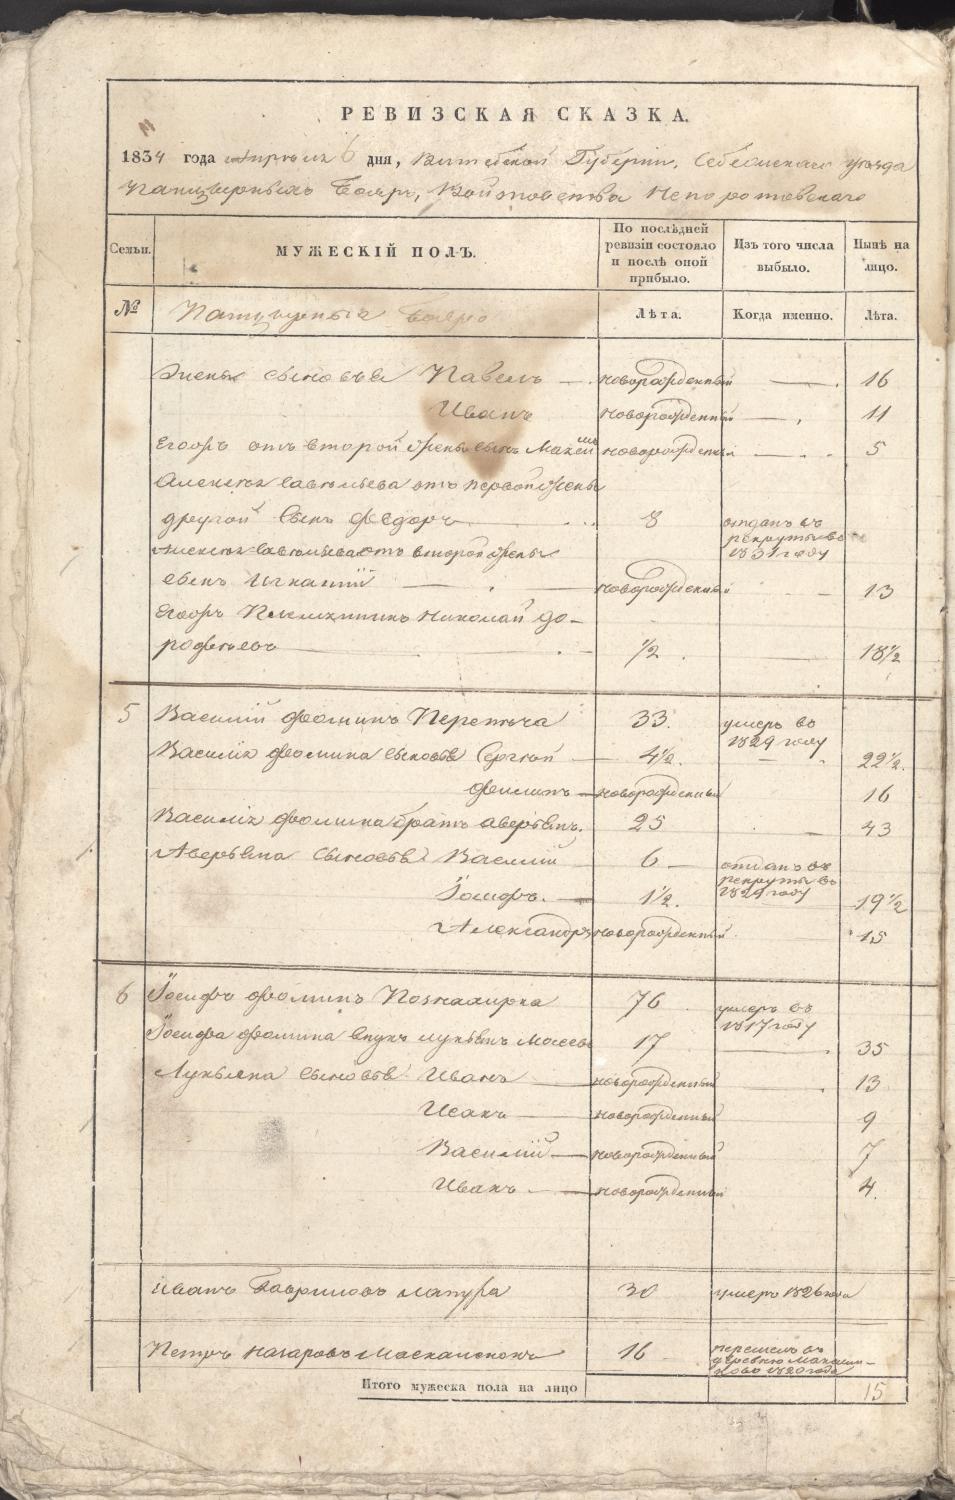 РЕВИЗСКАЯ СКАЗКА.
1834 года Апреля 6 дня, Витебской Губернiи, Себежскаго уезда
Панцырныхъ Бояръ, Войтовства Непоротовскаго
Семьи. МУЖЕСКIЙ ПОЛЪ. По послѣдней ревизiи состояло и послѣ оной прибыло. Изъ того числа выбыло. Нынѣ на лицо.
№ Панцырныя Бояре Лѣта. Когда именно. Лѣта.
сыновья Павелъ новорожденный 16
Иванъ новорожденный 11
Егоръ отъ второй жены сынъ новорожденный 5
Алексея Савельева отъ первой жены
другой сынъ Федоръ 8 отданъ въ рекруты въ 1831 году
Алексея Савельева отъ второй жены
сынъ Игнатiй новорожденный 13
Егоръ Племянникъ Николай До-
рофеевъ ½ 18½
5 Василiй Фоминъ Перетяча 33. умеръ въ 1829 году
Василiя Фомина сыновья Сергей 4½. 22½.
Филипъ новорожденный 16
Василiя Фомина братъ Аверьянъ. 25 43
Аверьяна сыновья Василiй 6 отданъ въ рекруты въ 1829 году
Iосифъ. 1½. 19½
Александръ новорожденный 15
6 Iосифъ Фоминъ Познахирка 76 умеръ въ 1817 году
Iосифа Фомина внукъ Лукьянъ 17 35
Лукьяна сыновья Иванъ новорожденный 13
Исакъ новорожденный 9
Василiй новорожденный 7
Иванъ новорожденный 4.
Иванъ Гавриловъ Мапура 30 умеръ 1826 года
Петръ Назаровъ 16 перешелъ въ деревню 1820 года
Итого мужеска пола на лицо 15